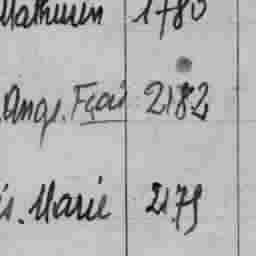 Mathurin 1780
Ange. Fçois 2182
s. Marie 2179